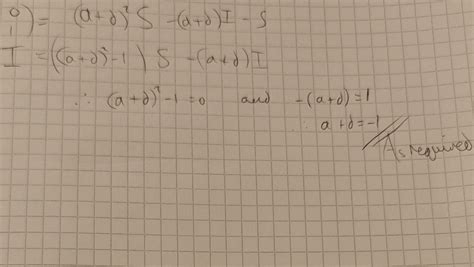 0
1) = (a+d)² S - (a+d) I - S
I = ((a+d)² - 1) S - (a+d) I
∴ (a+d)² - 1 = 0 and -(a+d) = 1
∴ a + d = -1
As required